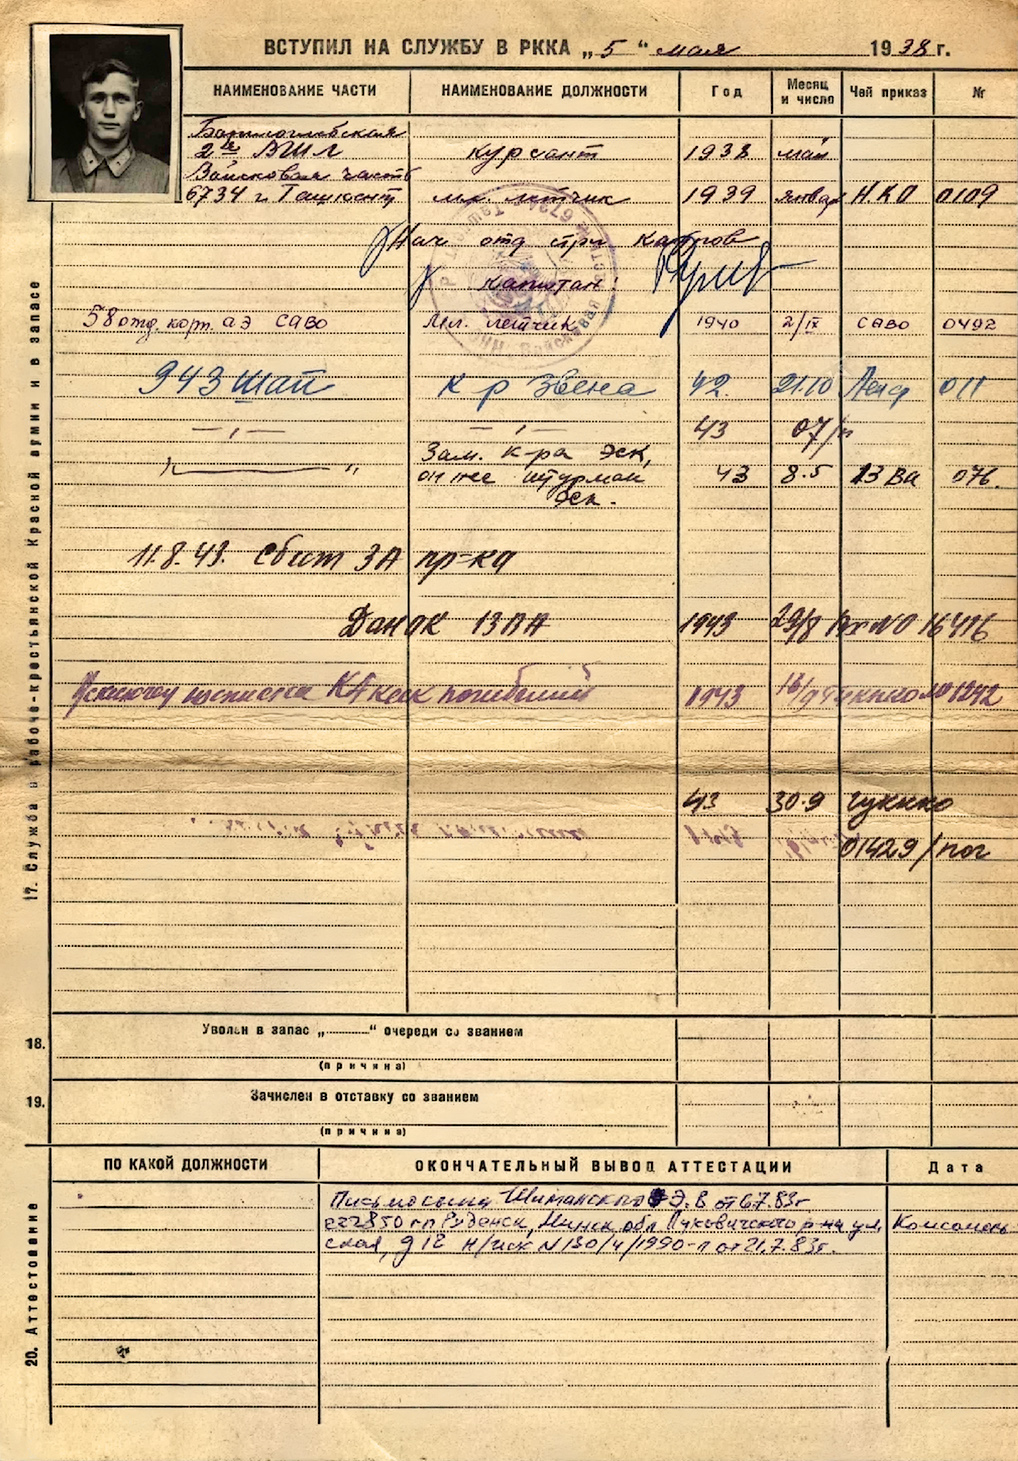 ВСТУПИЛ НА СЛУЖБУ В РККА „ 5 “ мая 1938 г.
НАИМЕНОВАНИЕ ЧАСТИ НАИМЕНОВАНИЕ ДОЛЖНОСТИ Год Месяц и число Чей приказ №
Борисоглебская
2ая ВШЛ курсант 1938 май
Войсковая часть
6734 г. Ташкент мл. летчик 1939 январь Н.К.О 0109
Нач отд кадров
капитан:
58 отд. корп. аэ САВО Мл. летчик 1940 2/IX САВО 0492
943 Шап К р Звена 42. 21.10 011
— „ — — „ — 43 07/
Зам. к-ра эск,
он же штурман 43 8.5 13 Ва 076.
эск.
11.8.43. Сбит ЗА пр-ка
13 ВА 1943 29/8 Вх № 0 16416
КА как погибший 1943 1242
43 30.9 гукнко
01429/пог
17. Служба в рабоче-крестьянской Красной армии и в запасе
18. Уволен в запас „.........“ очереди со званием
(причина)
19. Зачислен в отставку со званием
(причина)
20. Аттестование
ПО КАКОЙ ДОЛЖНОСТИ ОКОНЧАТЕЛЬНЫЙ ВЫВОД АТТЕСТАЦИИ Дата
Письмо сына Шиманского Э. В от 6.7.83г
222850 гп Руденск, Минск. обл Пуховичского р-на ул. Комсомоль-
ская, д 12 Н/иск № 130/4/1990-п от 21.7.83г.